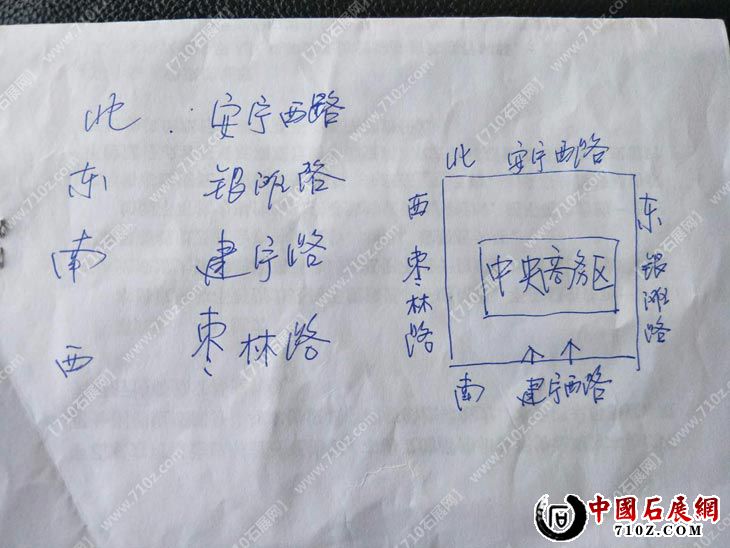 北 安宁西路
东 银滩路
南 建宁路
西 枣林路
北 安宁西路
西 枣林路
东 银滩路
中央商务区
南 建宁西路
中國石展網
710z.com
【710z石展网】
www.710z.com